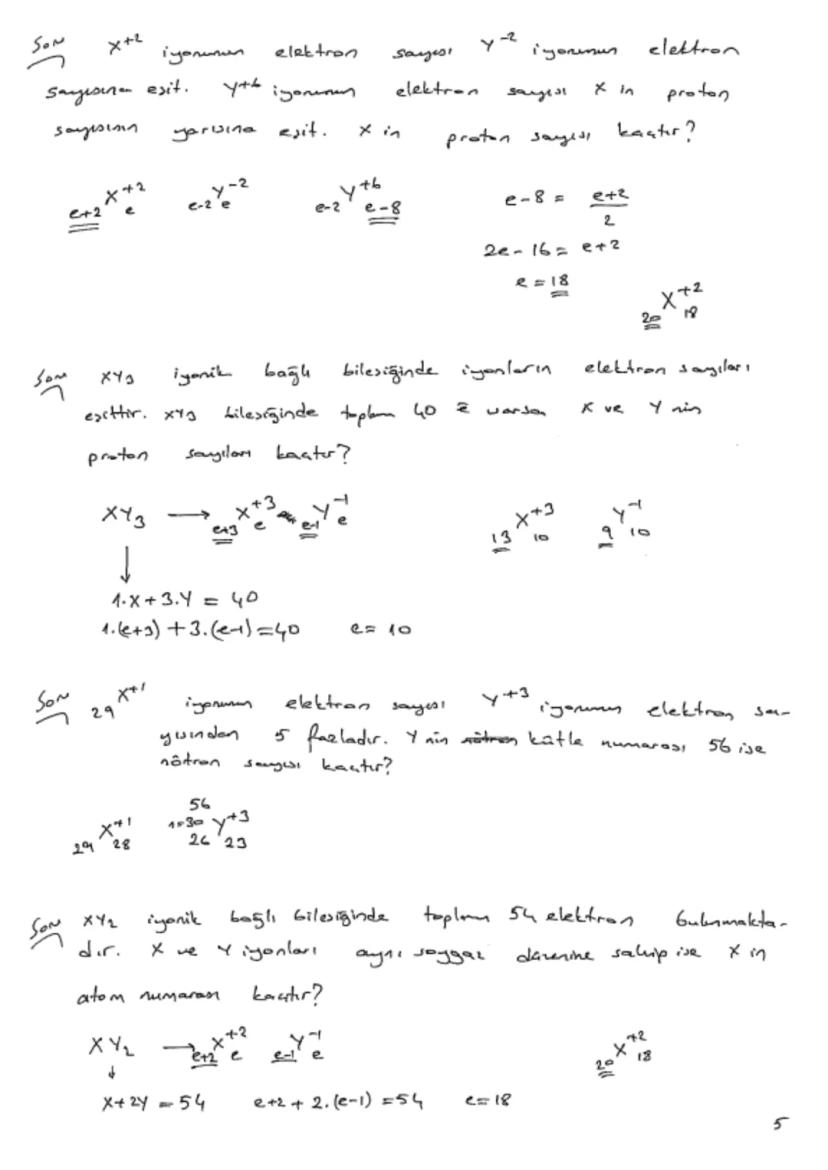 Soru X⁺² iyonunun elektron sayısı Y⁻² iyonunun elektron
sayısına eşit. Y⁺⁶ iyonunun elektron sayısı X in proton
sayısının yarısına eşit. X in proton sayısı kaçtır?
e+2 X⁺² e   e-2 Y⁻² e   e-2 Y⁺⁶ e-8   e-8 = e+2/2
2e-16 = e+2
e = 18
20 X⁺² 18
Soru XY₃ iyonik bağlı bileşiğinde iyonların elektron sayıları
eşittir. XY₃ bileşiğinde toplam 40 ē varsa X ve Y nin
proton sayıları kaçtır?
XY₃ → e+3 X⁺³ e   e-1 Y⁻¹ e   13 X⁺³ 10   9 Y⁻¹ 10
↓
1.X + 3.Y = 40
1.(e+3) + 3.(e-1) = 40   e = 10
Soru 29 X⁺¹ iyonunun elektron sayısı Y⁺³ iyonunun elektron sa-
yısından 5 fazladır. Y nin nötron kütle numarası 56 ise
nötron sayısı kaçtır?
29 X⁺¹ 28   56 n=30 26 Y⁺³ 23
Soru XY₂ iyonik bağlı bileşiğinde toplam 54 elektron bulunmakta-
dır. X ve Y iyonları aynı soygaz düzenine sahip ise X in
atom numarası kaçtır?
XY₂ → e+2 X⁺² e   e-1 Y⁻¹ e   20 X⁺² 18
↓
X + 2Y = 54   e+2 + 2.(e-1) = 54   e = 18
5